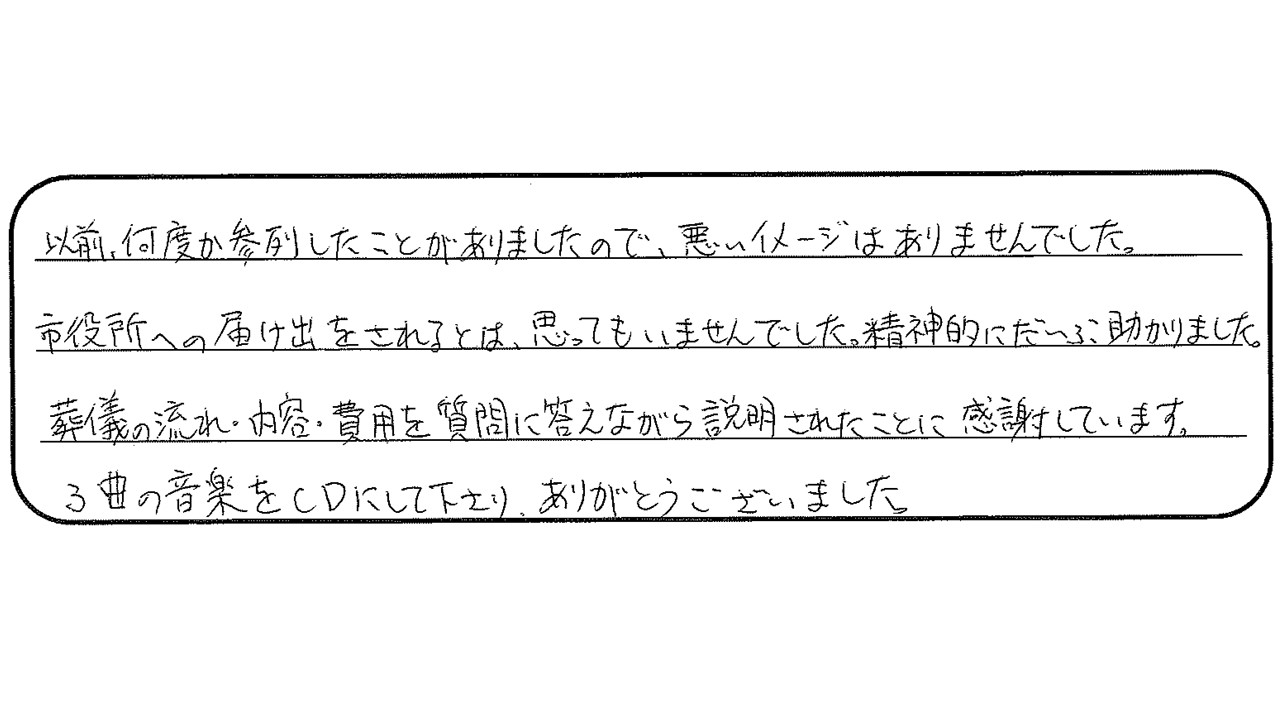 以前、何度か参列したことがありましたので、悪いイメージはありませんでした。
市役所への届け出をされるとは、思ってもいませんでした。精神的にだいぶ助かりました。
葬儀の流れ・内容・費用を質問に答えながら説明されたことに感謝しています。
3曲の音楽をCDにして下さり、ありがとうございました。